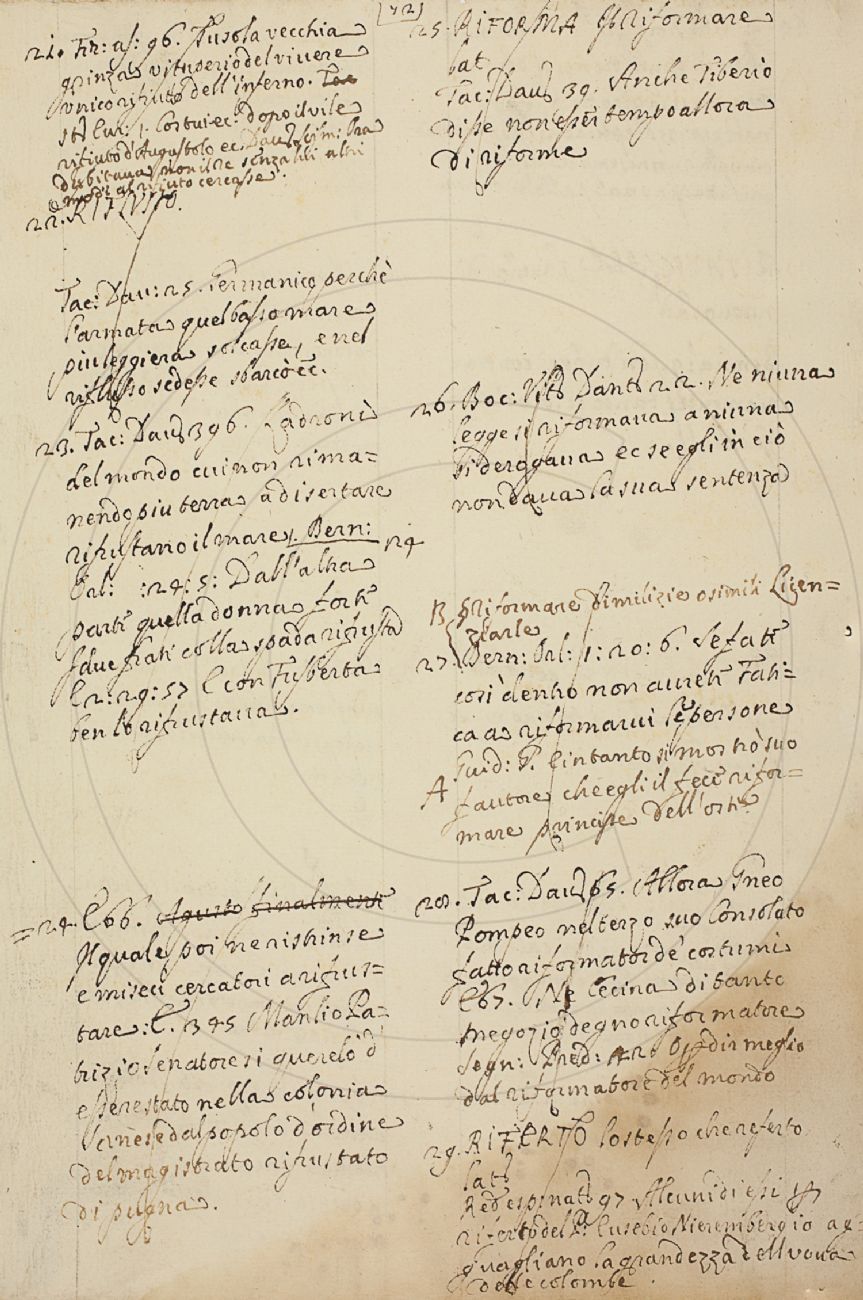 21. Fir: as: 96. Ausola vecchia
grinza vituperio del vivere
unico rifiuto dell'inferno. Tac
Costui ec: dopo il vile
rifiuto d'Augustolo ec. Dav:
dubitava non il Re senza lui altri
modi al rifiuto cercasse.
22. RIFLUSSO.
Tac: Dav: 25. Germanico perchè
l'armata quel basso mare
più leggiera solcasse, e nel
riflusso sedesse sbarcò ec.
23. Tac: Dav: 396. Ladroni
del mondo cui non rima=
nendo più terra a disertare
rifrustano il mare. Bern:
Orl: :24:5: Dall'altra
parte quella donna forte
i due frati colla spada rifrusta
E 2:29:57 E con Fusberta
ben lo rifrustava.
=24. E 66. Agusto finalmente
Il quale poi ne ristrinse
e misesi cercatori a rifrus=
tare: E. 345 Manlio Pa=
trizio Senatore si querelò d'
essere stato nella colonia
Sanese dal popolo d'ordine
del magistrato rifrustato
di pugna.
[72]
25. RIFORMA Il Riformare
lat.
Tac: Dav: 39. Anche Tiberio
disse non esser tempo allora
di riforme
26. Boc: Vit: Dant: 22. Ne niuna
legge si riformava a niuna
si derogava ec se egli in ciò
non dava la sua sentenza
B § Riformare di milizie o simili Licen=
ziarle
27. Bern: Orl: 1:20:6. Se fate
così dentro non avrete fati=
ca a riformarvi le persone
A Guid: G. E intanto si mostrò suo
fautore che egli il fece rifor=
mare principe dell'oste
28. Tac: Dav: 65. Allora Gneo
Pompeo nel terzo suo Consolato
fatto riformator de' costumi
E 67. Ne Cecina di tanto
negozio degno riformatore
Segn: Pred: dir meglio
dal riformatore del mondo
29. RIFERTO lo stesso che referto
lat:
Red esp: nat: 97 Alcuni di essi
riferto del P: Eusebio Nierembergio ag=
guagliano la grandezza dell'uova
delle colombe.